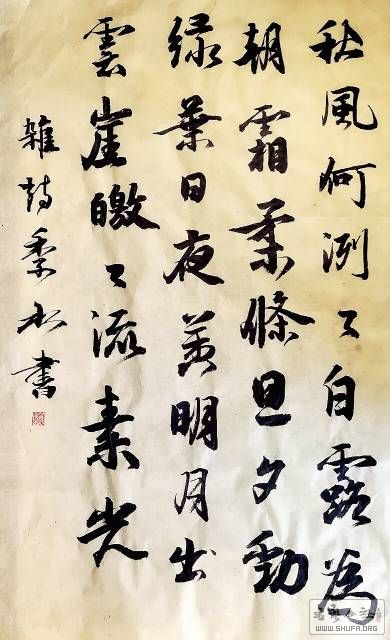 秋風何冽〻白露為
朝霜柔條旦夕勁
緑葉日夜黄明月出
雲崖皦〻流素光
雜詩 書
WWW.SHUFA.ORG